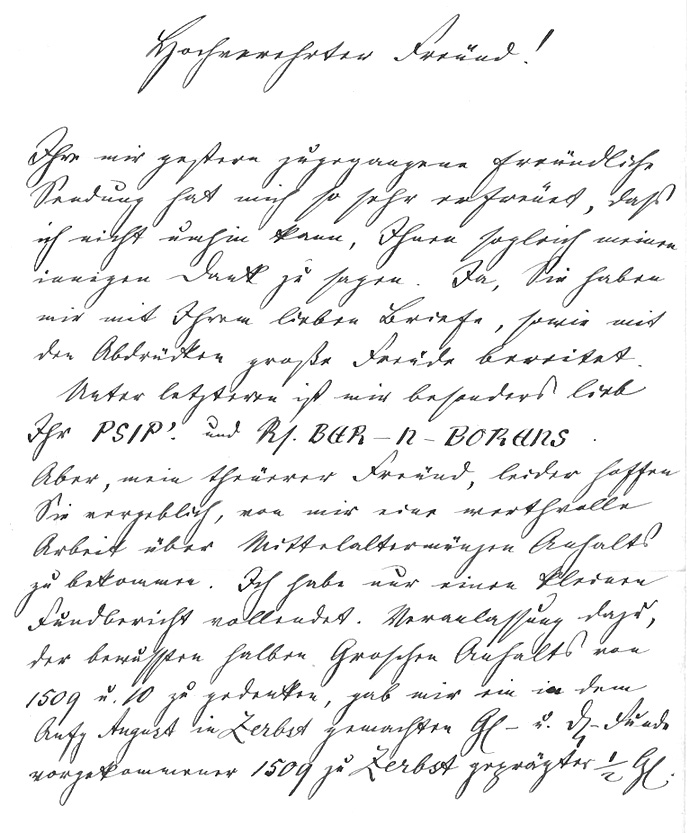 Hochverehrter Freund!
Ihre mir gestern zugegangene freundliche
Sendung hat mich so sehr erfreut, daß
ich nicht umhin kann, Ihnen sogleich meinen
innigen Dank zu sagen. Ja, Sie haben
mir mit Ihrem lieben Briefe, sowie mit
den Abdrücken große Freude bereitet.
Unter letzteren ist mir besonders lieb
Ihr PSIP'. und Rs. BER-N-BORENS.
Aber, mein theuerer Freund, leider hoffen
Sie vergeblich, von mir eine werthvolle
Arbeit über Mittelaltermünzen Anhalts
zu bekommen. Ich habe nur einen kleinen
Fundbericht vollendet. Veranlassung dazu,
der bewußten halben Groschen Anhalts von
1509 u. 10 zu gedenken, gab mir ein in dem
Anfg August in Zerbst gemachten Gl- u. -Funde
vorgekommener 1509 zu Zerbst geprägter 1/2 Gl.